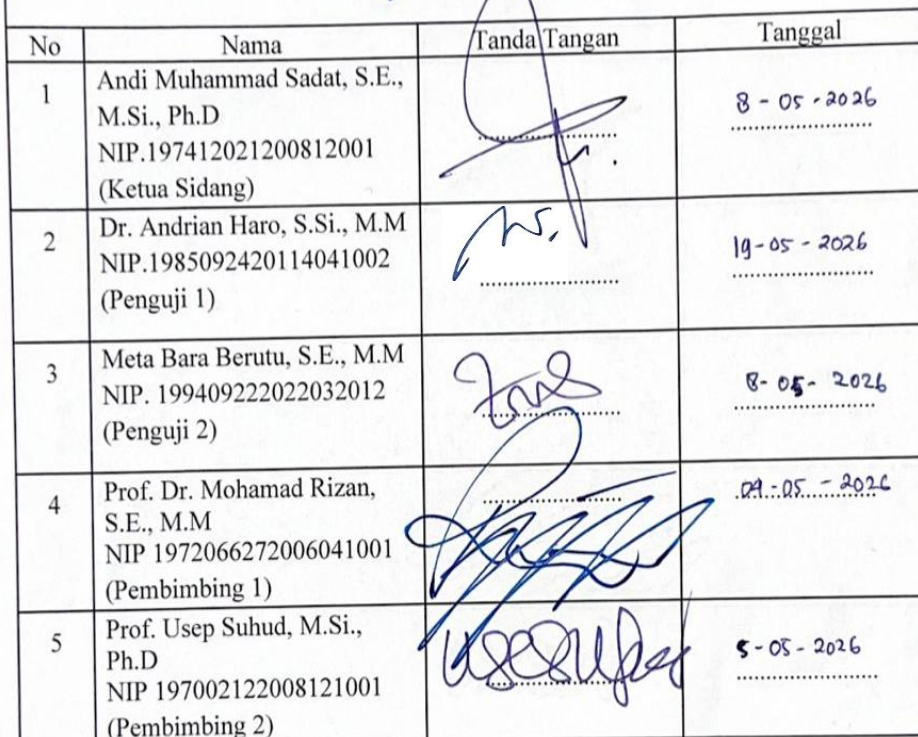 No Nama Tanda Tangan Tanggal
1 Andi Muhammad Sadat, S.E.,
M.Si., Ph.D
NIP.197412021200812001
(Ketua Sidang)
8 - 05 - 2026
2 Dr. Andrian Haro, S.Si., M.M
NIP.1985092420114041002
(Penguji 1)
19-05-2026
3 Meta Bara Berutu, S.E., M.M
NIP. 199409222022032012
(Penguji 2)
8-05-2026
4 Prof. Dr. Mohamad Rizan,
S.E., M.M
NIP 1972066272006041001
(Pembimbing 1)
-05-2026
5 Prof. Usep Suhud, M.Si.,
Ph.D
NIP 197002122008121001
(Pembimbing 2)
5-05-2026